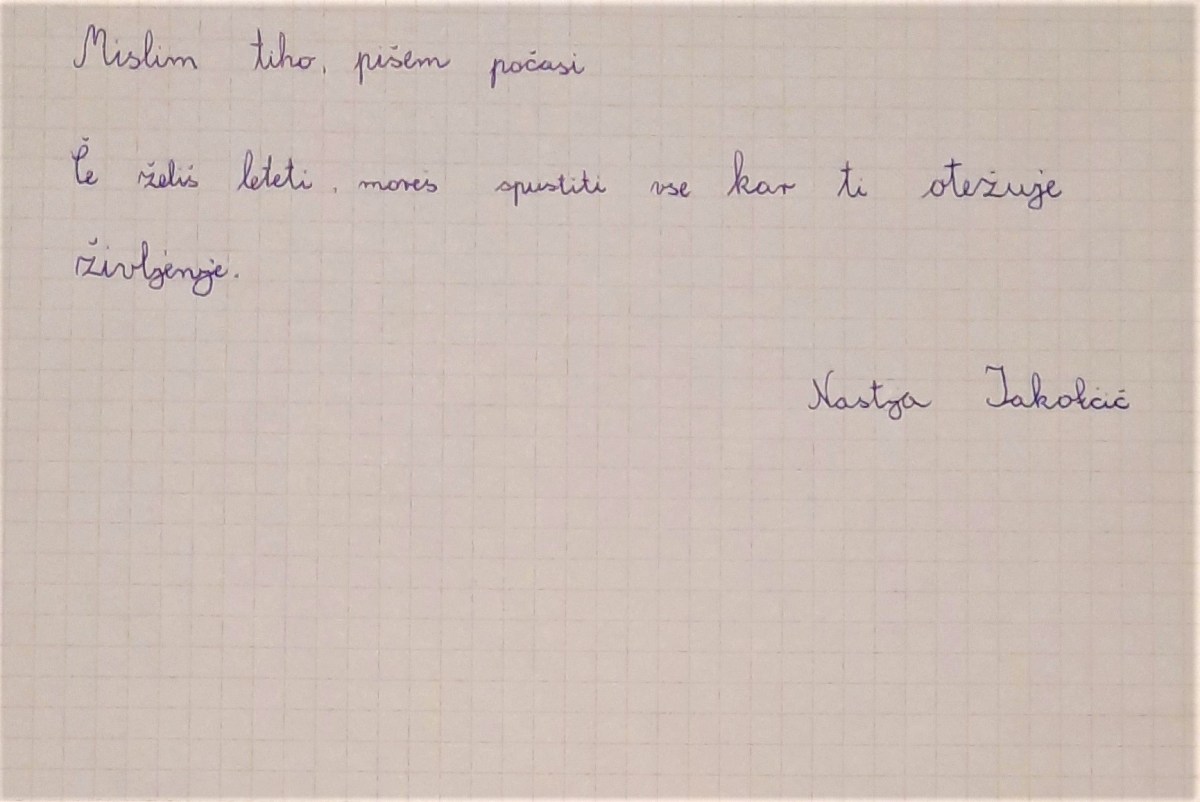 Mislim tiho, pišem počasi
Če želiš leteti, moreš spustiti vse kar ti otežuje
življenje.
Nastja Jakolčič